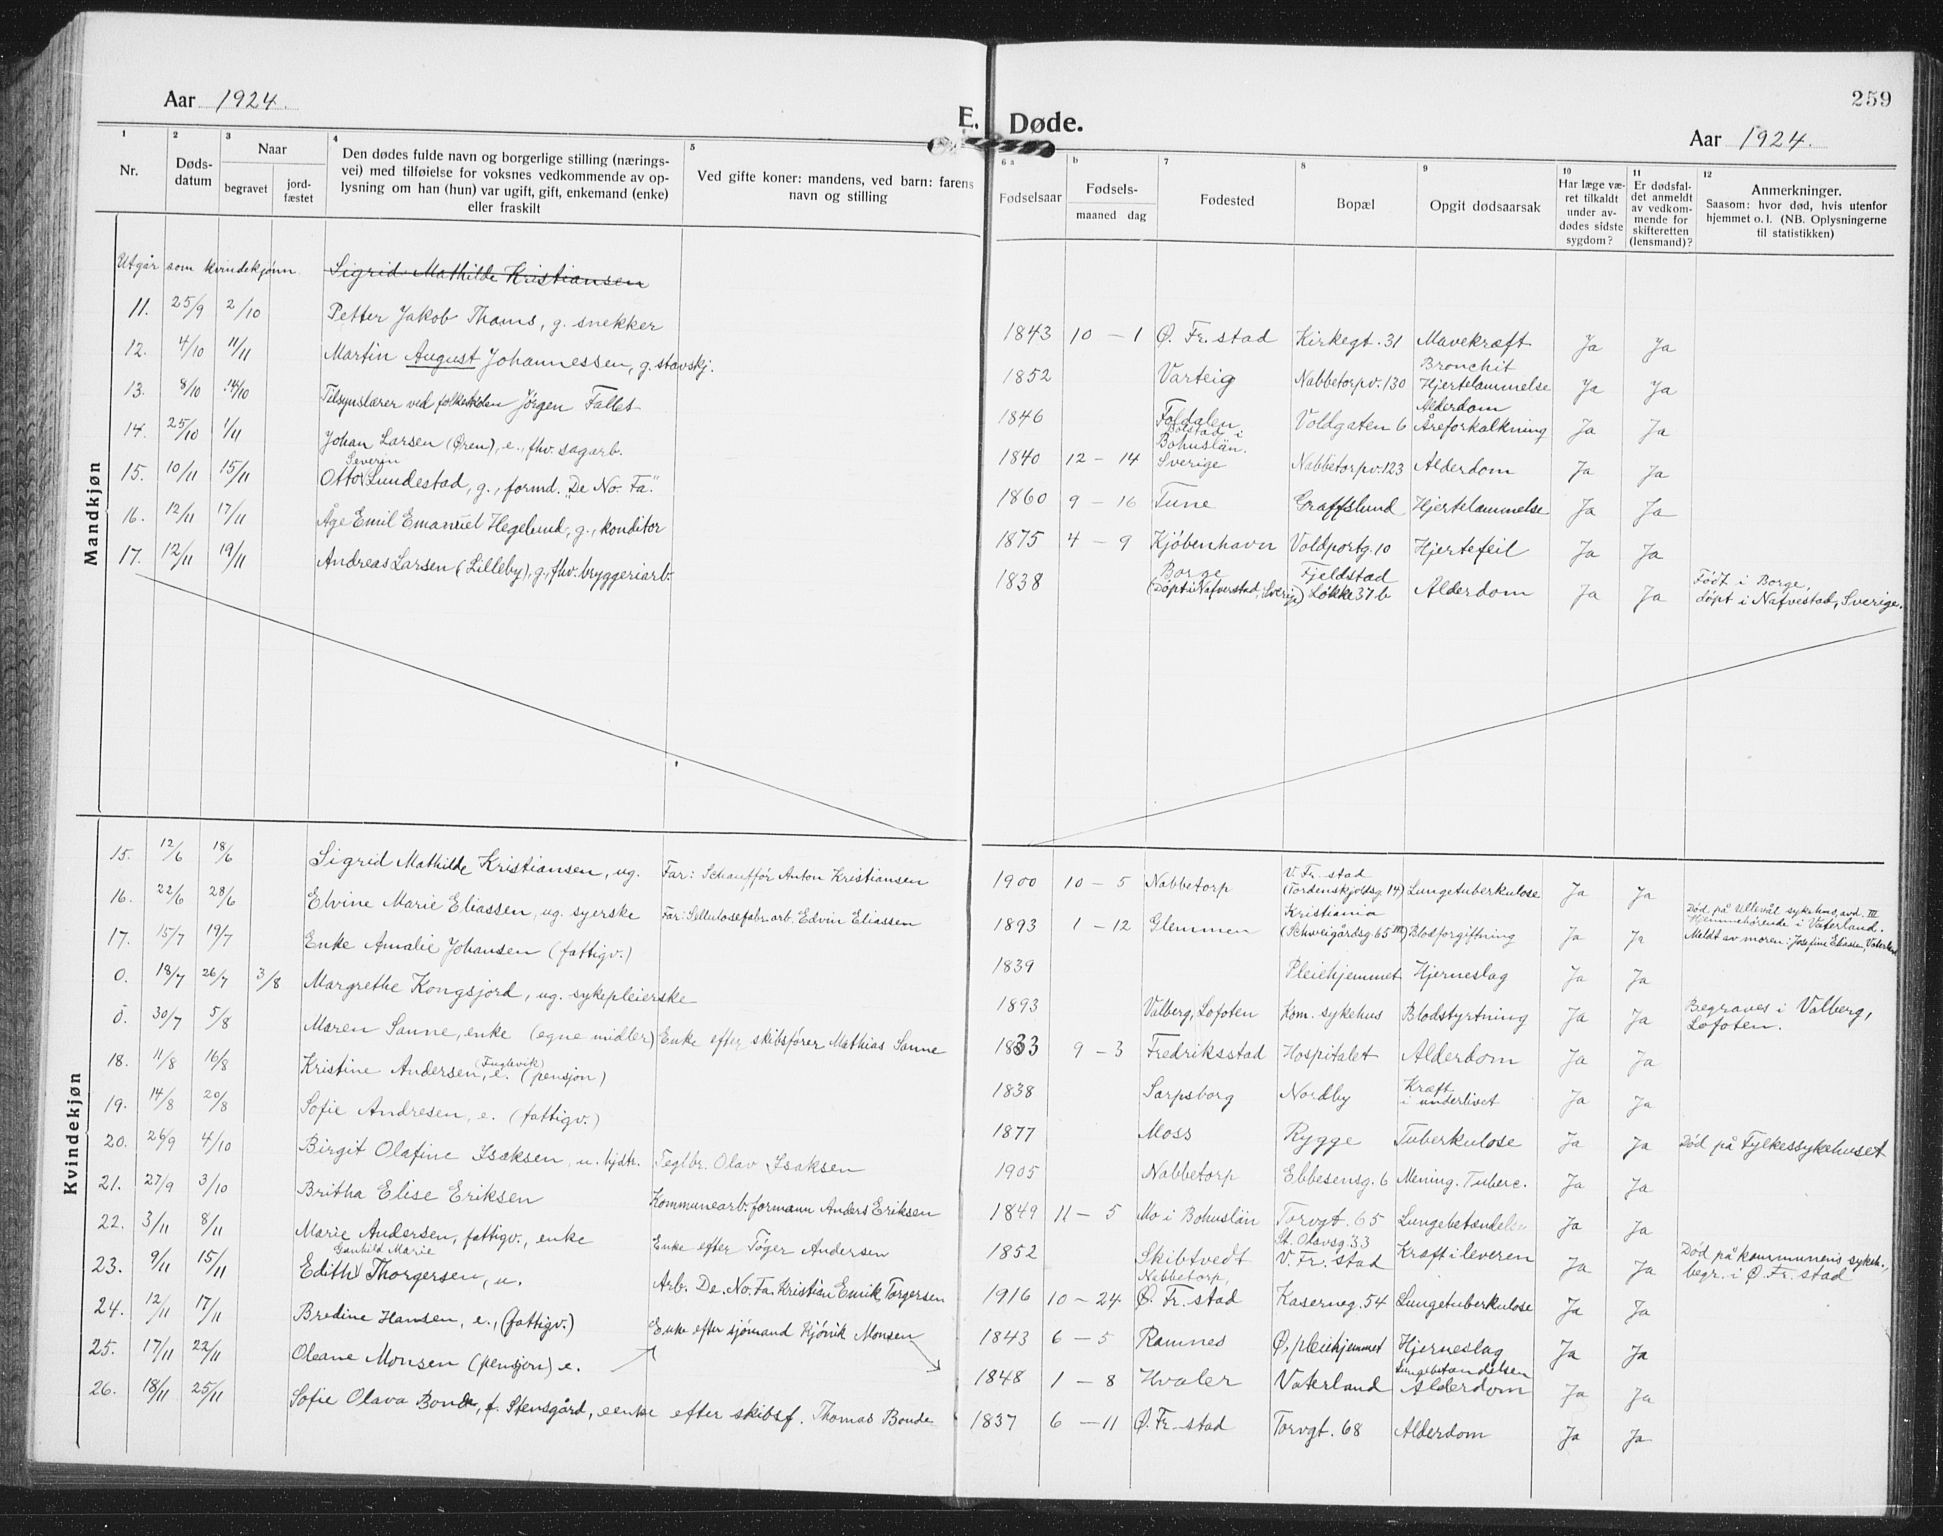 Aar 1924.
E. Døde.
259
Aar 1924.
1 2 3 4 5 6 a b 7 8 9 10 11 12
Nr.
Døds-
datum
Naar
begravet
jord-
fæstet
Den dødes fulde navn og borgerlige stilling (nærings-
vei) med tilføielse for voksnes vedkommende av op-
lysning om han (hun) var ugift, gift, enkemand (enke)
eller fraskilt
Ved gifte koner: mandens, ved barn: farens
navn og stilling
Fødselsaar
Fødsels-
maaned dag
Fødested
Bopæl
Opgit dødsaarsak
Har læge væ-
ret tilkaldt
under av-
dødes sidste
sygdom?
Er dødsfal-
det anmeldt
av vedkom-
mende for
skifteretten
(lensmand)?
Anmerkninger.
Saasom: hvor død, hvis utenfor
hjemmet o. l. (NB. Oplysningerne
til statistikken)
Mandkjøn
Utgår som kvindekjønn Sigrid Mathilde Kristiansen
11. 25/9 2/10 Petter Jakob Thams, g. snekker 1843 10 — 1 Ø. Fr.stad Kirkegt. 31 Mavekræft Ja Ja
12. 4/10 11/11 Martin August Johannessen, g. stavskj. 1852 Varteig Nabbetorpv. 130 Bronchit
Hjertelammelse Ja Ja
13. 8/10 14/10 Tilsynslærer ved folkeskolen Jörgen Falles 1846 Foldalen Voldgaten 6 Alderdom
Åreforkalkning Ja Ja
14. 25/10 1/11 Johan Larsen (Øren), e., fhv. sagarb. 1840 12 — 14 Bolstad i
Bohuslän.
Sverige Nabbetorpv. 123 Alderdom Ja Ja
15. 10/11 15/11 Otto Severin Lundestad, g., formd. "De No. Fa." 1860 9 — 16 Tune Graffslund Hjertelammelse Ja Ja
16. 12/11 17/11 Åge Emil Emanuel Hegelund, g., konditor 1875 4 — 9 Kjöbenhavn Voldportg. 10 Hjertefeil Ja Ja
17. 12/11 19/11 Andreas Larsen (Lilleby), g., fhv. bryggeriarb. 1838 Borge
(Döpt i Nafverstad, Sverige) Fjeldstad
Løkke 37 b Alderdom Ja Ja Födt i Borge,
döpt i Nafvestad, Sverige.
Kvindekjøn
15. 12/6 18/6 Sigrid Mathilde Kristiansen, ug. Far: Schaufför Anton Kristiansen 1900 10 — 5 Nabbetorp V. Fr. stad
(Tordenskjoldsg. 14) Lungetuberkulose Ja Ja
16. 22/6 28/6 Elvine Marie Eliassen, ug. syerske Far: Sellulosefabr.arb. Edvin Eliassen 1893 1 — 12 Glemmen Kristiania
(Schweigårdsg. 65 III) Blodforgiftning Ja Ja Död på Ullevål sykehus, avd. III
Hjemmehörende i Vaterland.
Meldt av moren: Josefine Eliassen, Vaterland
17. 15/7 19/7 Enke Amalie Johansen (fattigv.) 1839 Pleiehjemmet Hjerneslag Ja Ja
0. 18/7 26/7 3/8 Margrethe Kongsjord, ug. sykepleierske 1893 Valberg, Lofoten Kom. sykehus Blodstyrtning Ja Ja Begraves i Valberg,
Lofoten.
0. 30/7 5/8 Maren Sanne, enke (egne midler) Enke efter skibsfører Mathias Sanne 1833 9 — 3 Fredriksstad Hospitalet Alderdom Ja Ja
18. 11/8 16/8 Kristine Andersen, (Fuglevik) e. (pensjon) 1838 Sarpsborg Nordby Kræft
i underlivet Ja Ja
19. 14/8 20/8 Sofie Andresen, e. (fattigv.) 1877 Moss Rygge Tuberkulose Ja Ja Död på Fylkessykehuset
20. 26/9 4/10 Birgit Olafine Isaksen, u. hjdtr. Teglbr. Olav Isaksen 1905 Nabbetorp Ebbesensg. 6 Mening. Tuberc. Ja Ja
21. 27/9 3/10 Britha Elise Eriksen Kommunearb.formann Anders Eriksen 1849 11 — 5 Mo i Bohuslän Torvgt. 65 Lungebetændelse Ja Ja
22. 3/11 8/11 Marie Andersen, fattigv., enke Enke efter Töger Andersen 1852 Skibtvedt St. Olavsg. 33
V. Fr. stad Kræft i leveren Ja Ja Död på kommunens sykeh.,
begr. i Ø. Fr. stad
23. 9/11 15/11 Edith Gunhild Marie Thorgersen, u. Arb. De. No. Fa. Kristian Emik Torgersen 1916 10 — 24 Nabbetorp,
Ø. Fr. stad Kaserneg. 54 Lungetuberkulose Ja Ja
24. 12/11 17/11 Bredine Hansen, e., (fattigv.) 1843 6 — 5 Ramnes Ø. pleiehjemmet Hjerneslag Ja Ja
25. 17/11 22/11 Oleane Monsen (pensjon) e. Enke efter sjömand Kjönik Monsen 1848 1 — 8 Hvaler Vaterland Lungebetændelsen
Alderdom Ja Ja
26. 18/11 25/11 Sofie Olava Bonde, f. Stensgård, eenke efter skibsf. Thomas Bonde 1837 6 — 11 Ø. Fr. stad Torvgt. 68 Alderdom Ja Ja